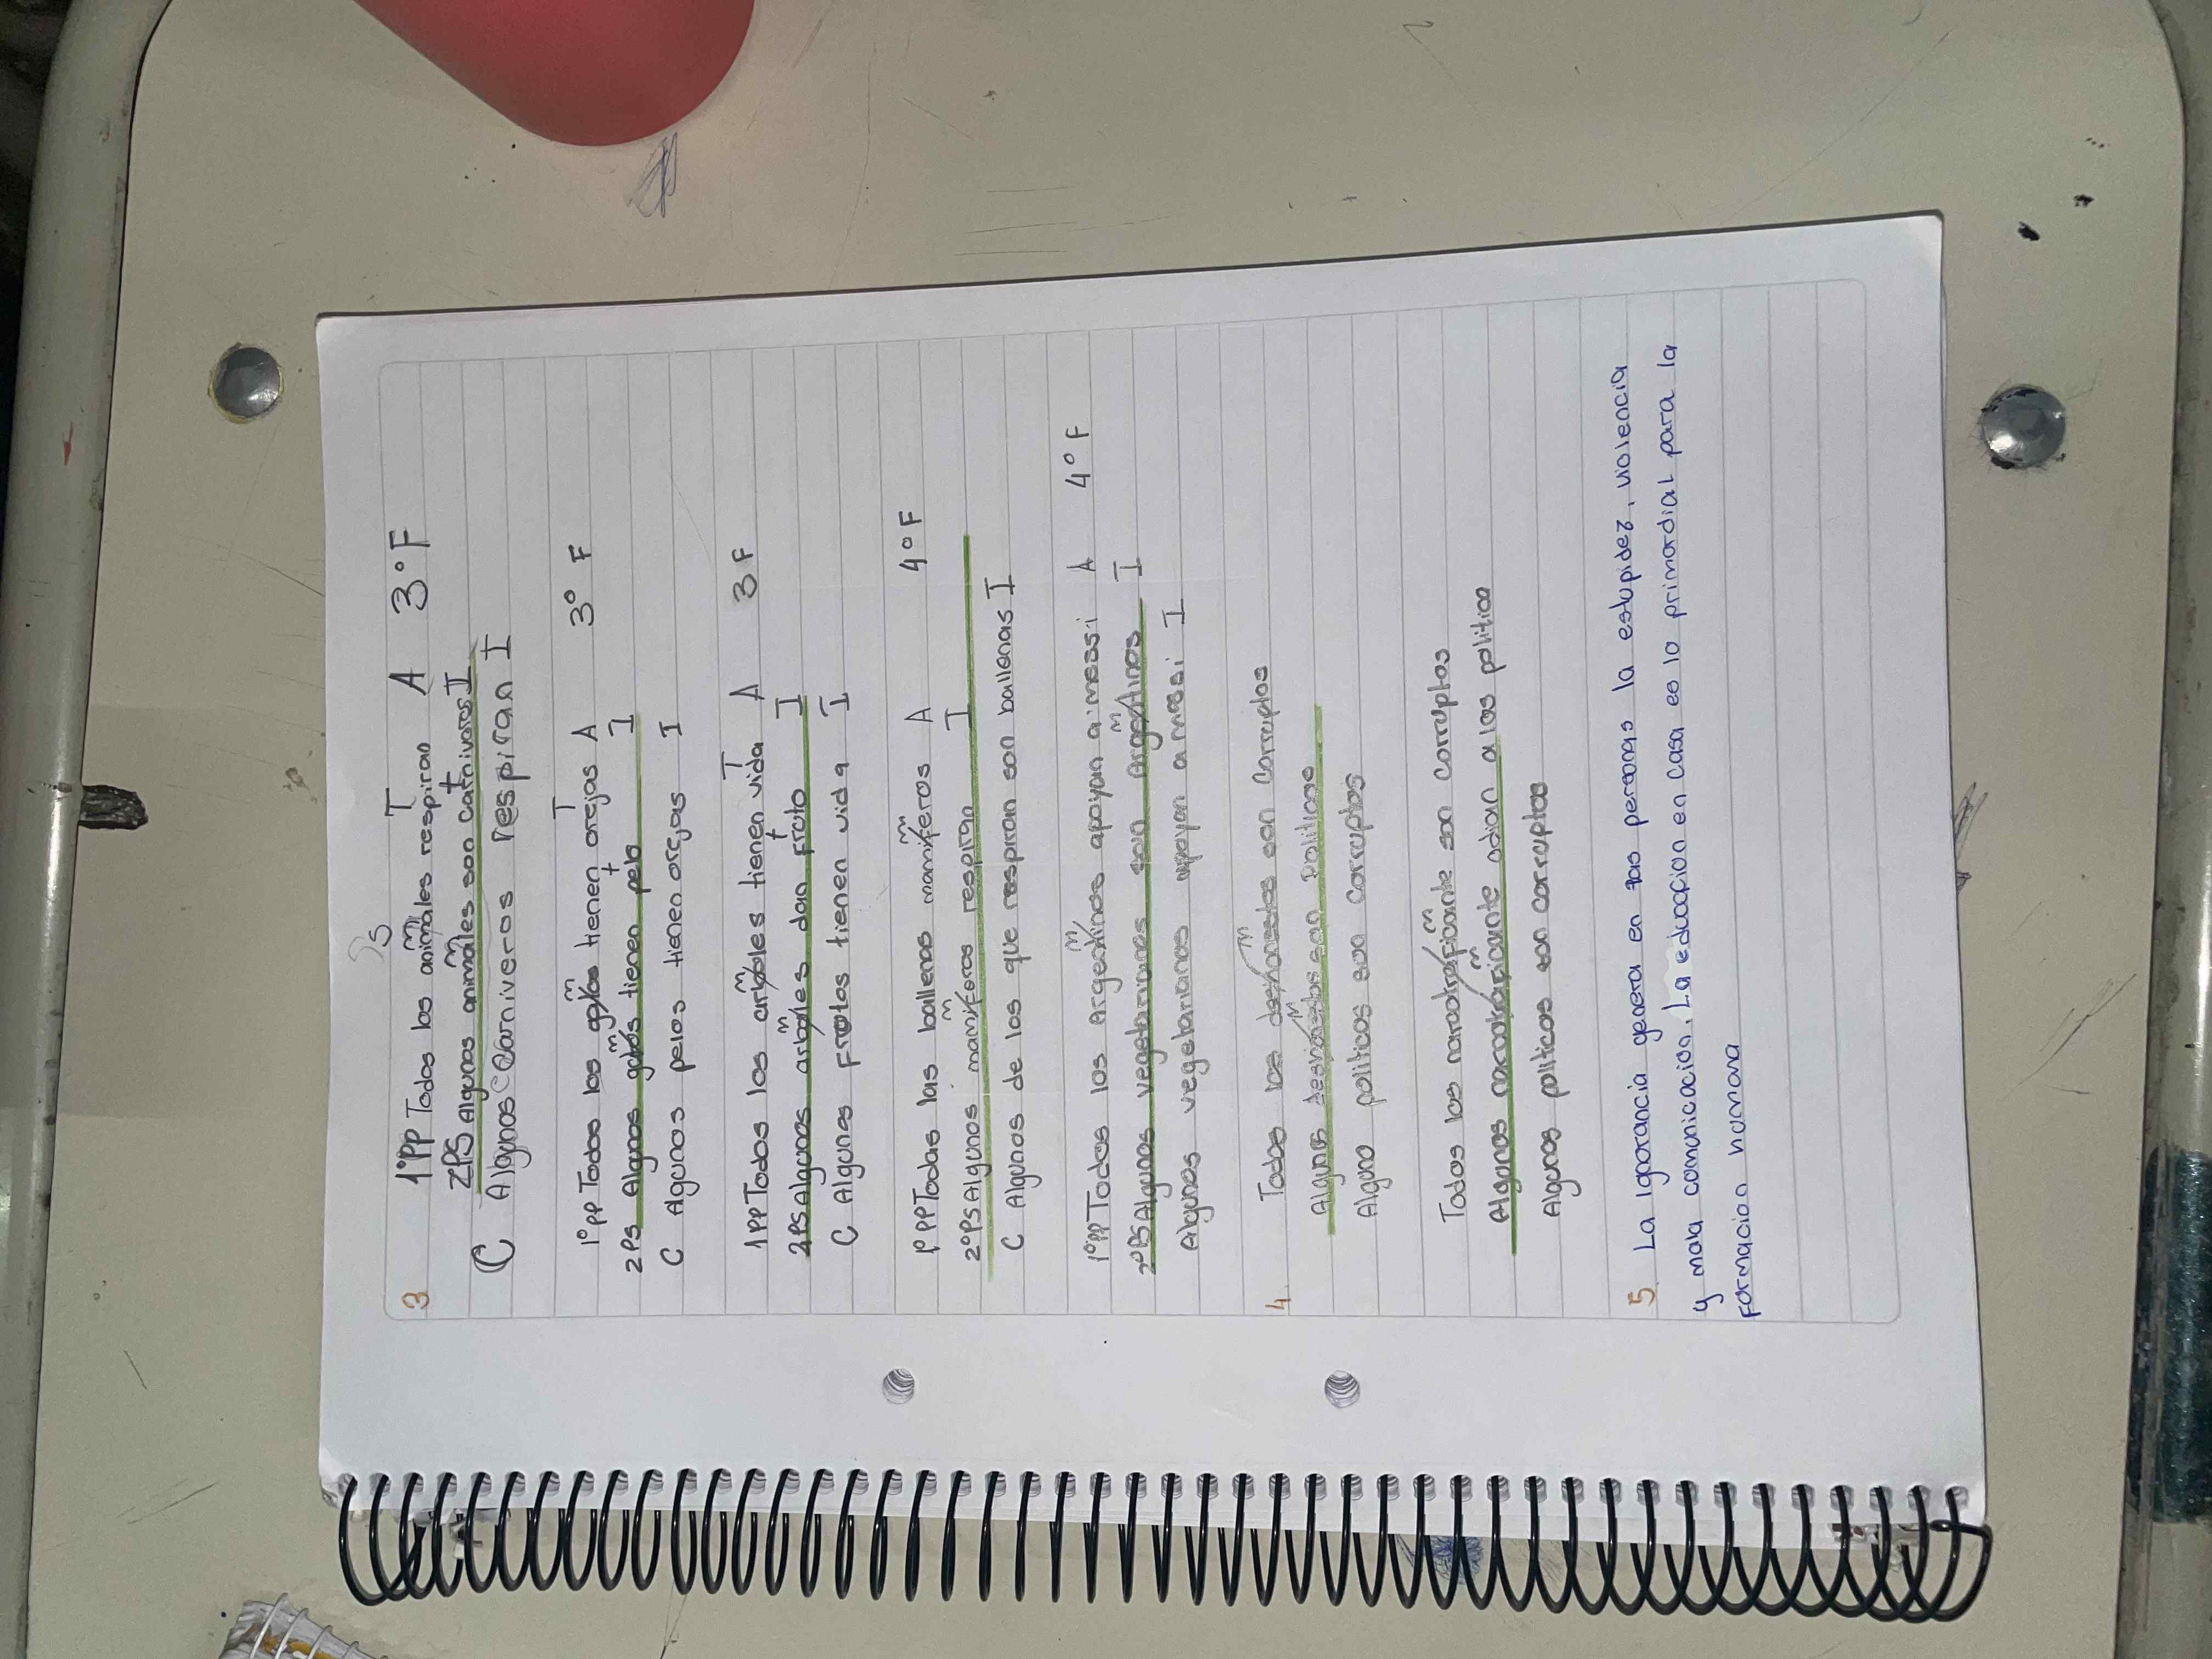 S
T
3 1ºPP Todos los animales respiran A 3ºF
m
m t
2PS Algunos animales son carnivoros I
C Algunos carniveros respiran I
m T
1ºPP Todos los gatos tienen orejas A 3º F
m t
2PS Algunos gatos tienen pelo I
C Algunos pelos tienen orejas I
m T
1PP Todos los arboles tienen vida A 3 F
m t
2PS Algunos arboles dan fruto I
C Algunas frutos tienen vida I
m
1ºPP Todas las ballenas mamiferos A 4º F
m
2ºPS Algunos mamiferos respiran I
C Algunos de los que respiran son ballenas I
m
1ºPP Todos los Argentinos apoyan a messi A 4º F
m
2ºPS Algunos vegetarianos son Argentinos I
Algunos vegetarianos apoyan a messi I
m
4. Todos los deshonestos son corruptos
m
Algunos deshonestos son politicos
Alguno politicos son corruptos
m
Todos los narcotraficante son corruptos
m
Algunos narcotraficante odian a los politico
Algunos politicos son corruptos
5. La ignorancia genera en las personas la estupidez, violencia
y mala comunicación. La educacion en casa es lo primordial para la
formacion humana